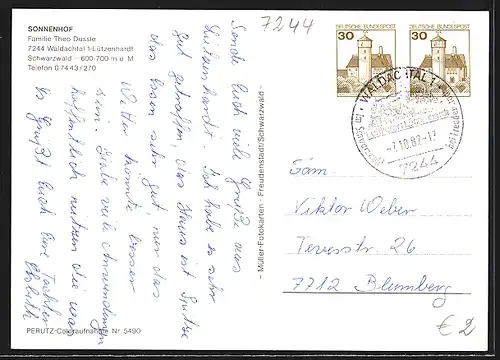 SONNENHOF
Familie Theo Dussle
7244 Waldachtal 1-Lützenhardt
Schwarzwald — 600-700 m ü M
Telefon 0 74 43 / 270
7244
DEUTSCHE BUNDESPOST
30
DEUTSCHE BUNDESPOST
30
WALDACHTAL 1
-7.10.82-17
7244
Sende Euch viele Grüße aus
Lützenhardt. Ich habe es sehr
gut getroffen, das Haus ist Spitze
das Essen sehr gut, nur das
Wetter könnte besser
sein. Habe viele Anwendungen
hoffentlich nützen die was
Es grüßt Euch Eure Tochter
- Müller-Fotokarten - Freudenstadt/Schwarzwald -
Fam.
Viktor Weber
26
7712 Blumberg
PERUTZ-Coloraufnahme Nr 5490
€ 2